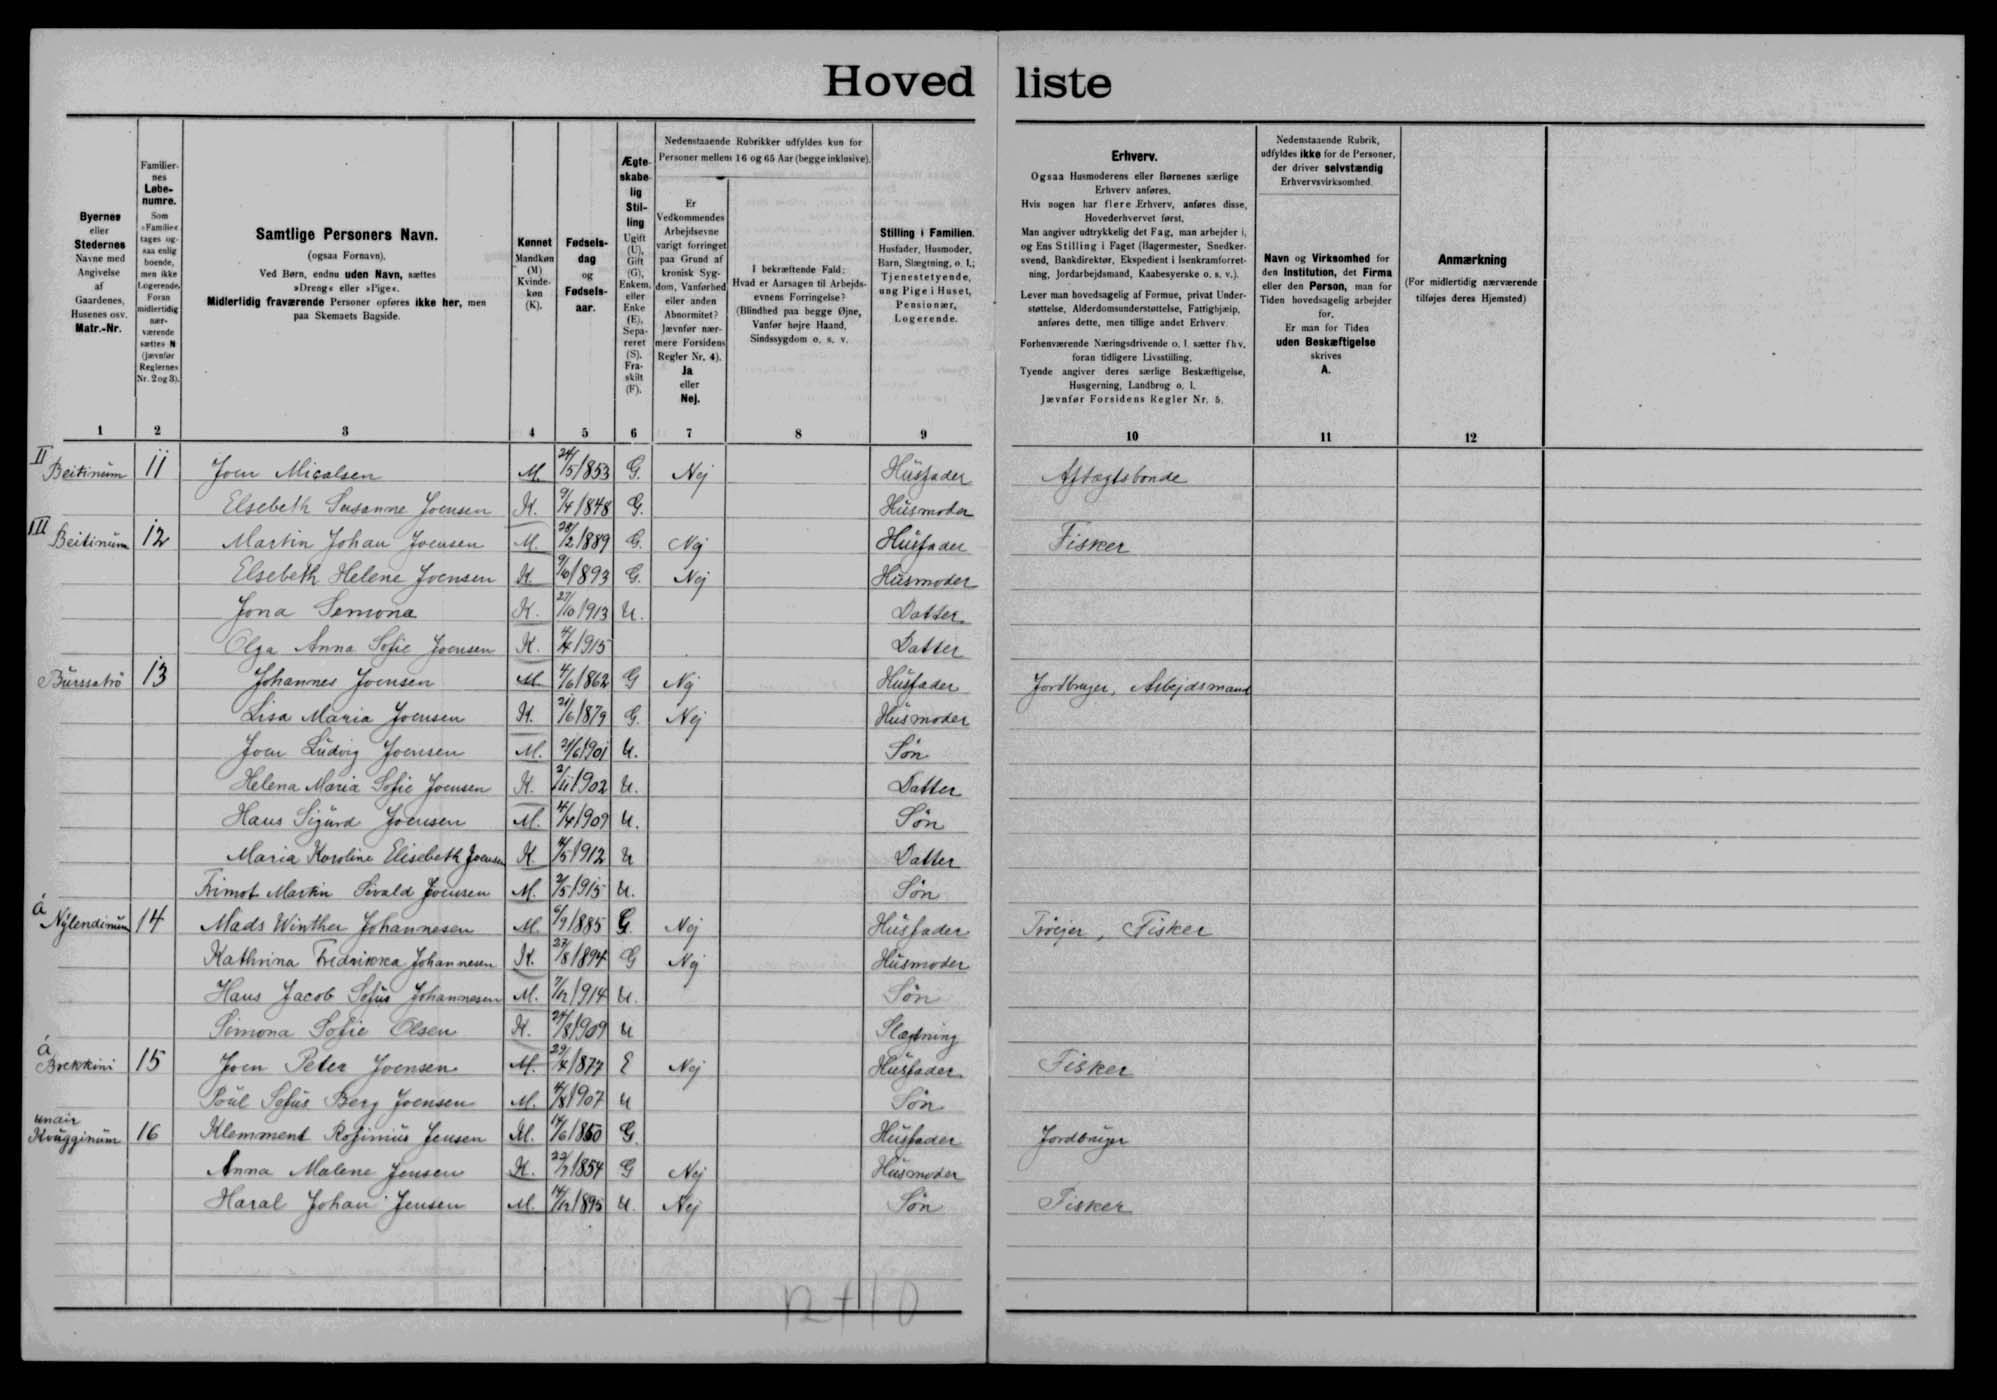 Hoved liste
Byernes eller Stedernes Navne med Angivelse af Gaardenes, Husenes osv. Matr.-Nr.
Familiernes Løbenumre. Som »Familie« tages ogsaa enlig boende, men ikke Logerende. Foran midlertidig nærværende sættes N (jævnfør Reglernes Nr. 2 og 3).
Samtlige Personers Navn. (ogsaa Fornavn). Ved Børn, endnu uden Navn, sættes »Dreng« eller »Pige«. Midlertidig fraværende Personer opføres ikke her, men paa Skemaets Bagside.
Kønnet Mandkøn (M) Kvindekøn (K).
Fødselsdag og Fødselsaar.
Ægteskabelig Stilling Ugift (U), Gift (G), Enkem. eller Enke (E), Separeret (S), Fraskilt (F).
Nedenstaaende Rubrikker udfyldes kun for Personer mellem 16 og 65 Aar (begge inklusive).
Er Vedkommendes Arbejdsevne varigt forringet paa Grund af kronisk Sygdom, Vanførhed eller anden Abnormitet? Jævnfør nærmere Forsidens Regler Nr. 4). Ja eller Nej.
I bekræftende Fald: Hvad er Aarsagen til Arbejdsevnens Forringelse? (Blindhed paa begge Øjne, Vanfør højre Haand, Sindssygdom o. s. v.
Stilling i Familien. Husfader, Husmoder, Barn, Slægtning, o. l.; Tjenestetyende, ung Pige i Huset, Pensionær, Logerende.
Erhverv.
Ogsaa Husmoderens eller Børnenes særlige Erhverv anføres.
Hvis nogen har flere Erhverv, anføres disse, Hovederhvervet først.
Man angiver udtrykkelig det Fag, man arbejder i, og Ens Stilling i Faget (Bagermester, Snedkersvend, Bankdirektør, Ekspedient i Isenkramforretning, Jordarbejdsmand, Kaabesyerske o. s. v.).
Lever man hovedsagelig af Formue, privat Understøttelse, Alderdomsunderstøttelse, Fattighjælp, anføres dette, men tillige andet Erhverv.
Forhenværende Næringsdrivende o. l. sætter fhv. foran tidligere Livsstilling.
Tyende angiver deres særlige Beskæftigelse, Husgerning, Landbrug o. l.
Jævnfør Forsidens Regler Nr. 5.
Nedenstaaende Rubrik, udfyldes ikke for de Personer, der driver selvstændig Erhvervsvirksomhed.
Navn og Virksomhed for den Institution, det Firma eller den Person, man for Tiden hovedsagelig arbejder for. Er man for Tiden uden Beskæftigelse skrives A.
Anmærkning (For midlertidig nærværende tilføjes deres Hjemsted)
1 2 3 4 5 6 7 8 9 10 11 12
II Beitinum 11 Joen Micalsen M. 24/5 1853 G. Nej Husfader Aftægtsbonde
Elsebeth Susanne Joensen K. 9/4 1848 G. Husmoder
III Beitinum 12 Martin Johan Joensen M. 28/2 1889 G. Nej Husfader Fisker
Elsebeth Helene Joensen K 9/10 1893 G. Nej Husmoder
Jona Semona K. 27/10 1913 U. Datter
Olga Anna Sofie Joensen K. 1915 Datter
Burssatrö 13 Johannes Joensen M. 4/6 1862 G Nej Husfader Jordbruger, Arbejdsmand
Lisa Maria Joensen K. 21/6 1879 G. Nej Husmoder
Joen Ludvig Joensen M. 21/6 1901 U. Søn
Helena Maria Sofie Joensen K. 2/11 1902 U. Datter
Hans Sigurd Joensen M. 4/4 1909 U. Søn
Maria Karoline Elisebeth Joensen K. 4/5 1912 U Datter
Trimot Martin Sivald Joensen M. 2/5 1915 U. Søn
á Nylendinum 14 Mads Winther Johannesen M. 6/9 1885 G. Nej Husfader Trøejer, Fisker
Kathrina Fredrikka Johannesen K. 27/8 1894 G Nej Husmoder
Hans Jacob Sofus Johannesen M. 7/12 1914 U. Søn
Simona Sofie Olsen K. 24/8 1909 U Slægtning
á Brekkini 15 Joen Peter Joensen M. 29/4 1877 E Nej Husfader Fisker
Poul Sofus Berg Joensen M. 4/8 1907 U Søn
unair Kvugginum 16 Klemment Rosinius Jensen M. 14/6 1850 G. Husfader Jordbruger
Anna Malene Jensen K. 1854 G Nej Husmoder
Haral Johan Jensen M. 14/12 1895 U. Nej Søn Fisker
12+10